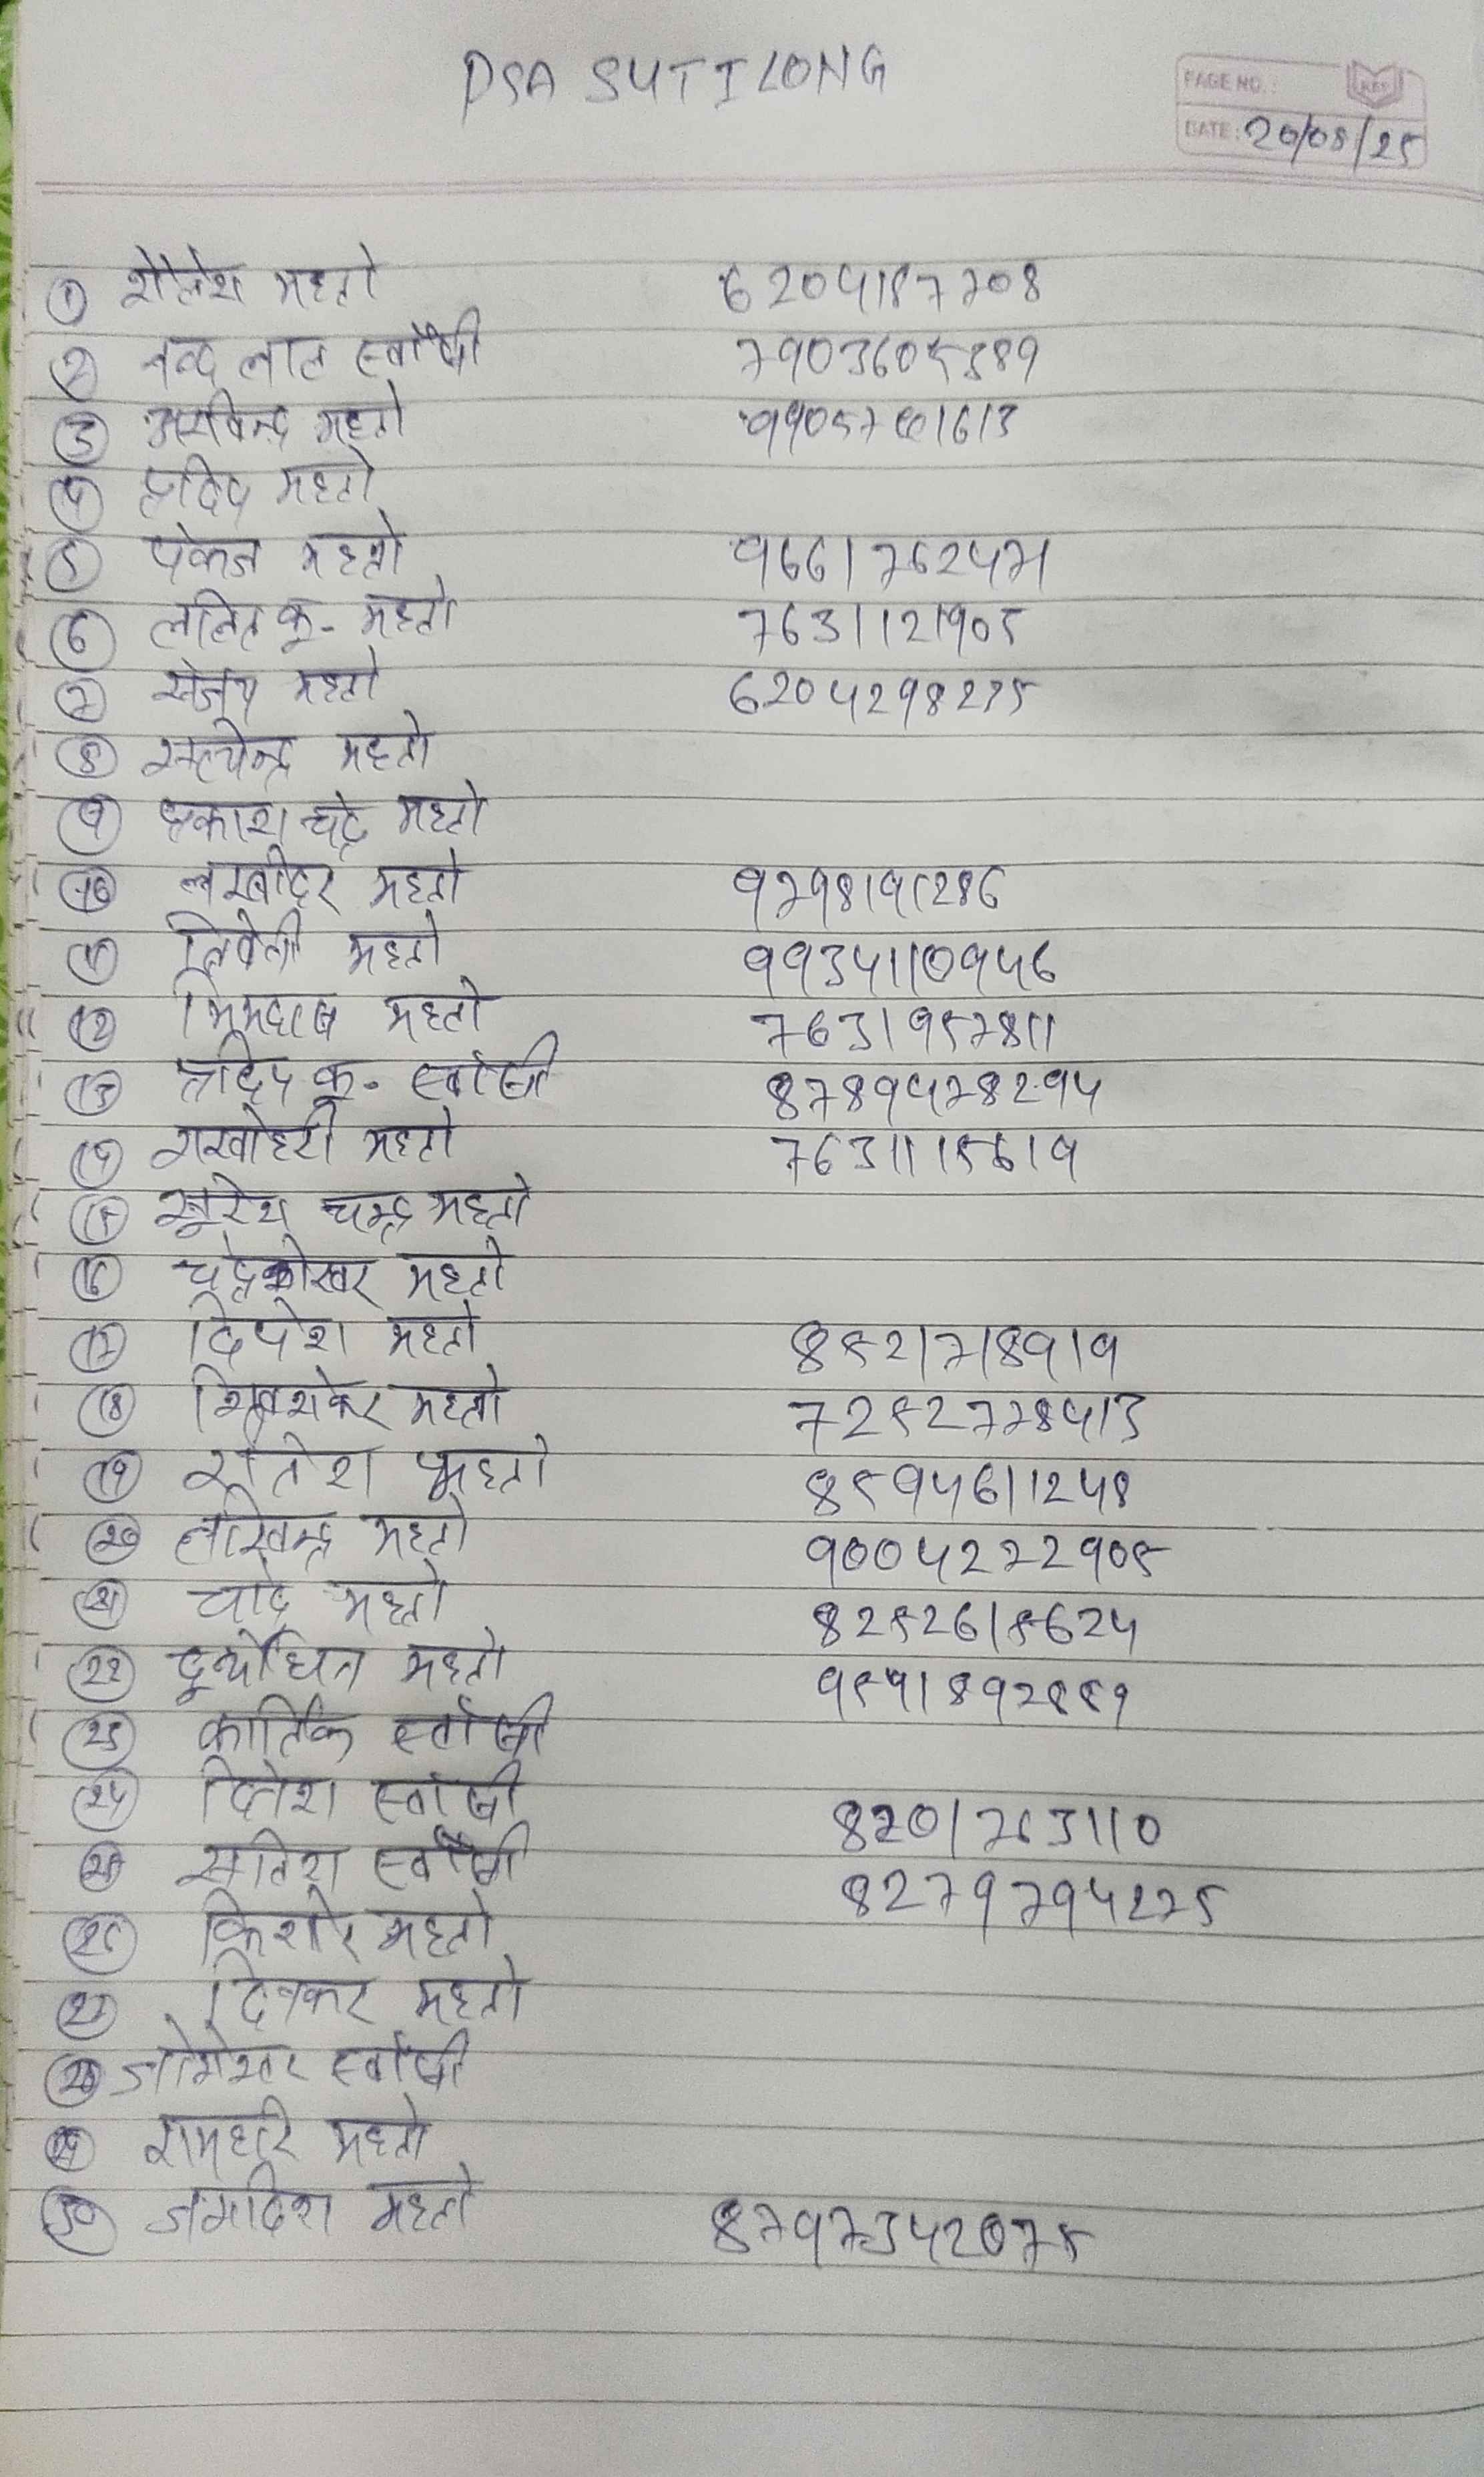 PSA SUTILONG
PAGE NO.:
DATE: 20/08/25
① शैलेश महतो 6204187708
② नन्द लाल स्वाँसी 7903605389
③ अरविन्द महतो
④ प्रदिप महतो
⑤ पंकज महतो 9661762471
⑥ ललित कु. महतो 7631121905
⑦ संजय महतो 6204298275
⑧ सत्येन्द्र महतो
⑨ प्रकाश चंद्र महतो
⑩ लखींदर महतो 9798191286
⑪ त्रिवेनी महतो 9934110946
⑫ महतो 7631957811
⑬ प्रदिप कु. स्वांसी 8789478294
⑭ राखोहरी महतो 7631115619
⑮ सुरेश चन्द्र महतो
⑯ चंद्रशेखर महतो
⑰ दिपेश महतो 8521718919
⑱ शिवशंकर महतो 7252778413
⑲ महतो 8594611248
⑳ महतो 9004272905
㉑ चांद महतो 8252615624
㉒ दुर्योधन महतो
㉓ कार्तिक स्वांसी
㉔ दिनेश स्वांसी 8201763110
㉕ सतिश स्वाँसी 8279794275
㉖ किशोर महतो
㉗ दिनकर महतो
㉘ जोगेश्वर स्वांसी
㉙ रामहरि महतो
㉚ जगदिश महतो 8797342075